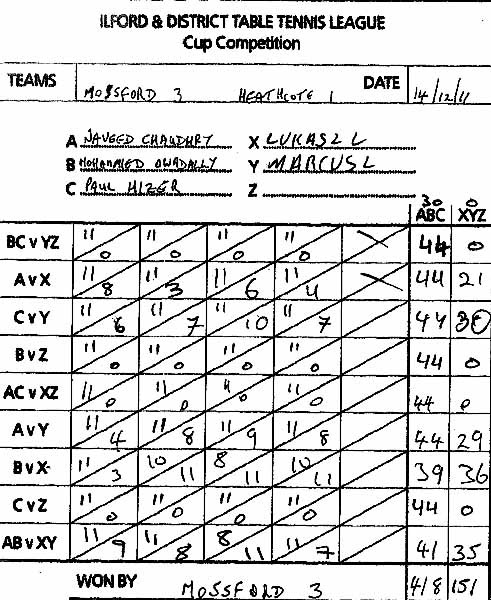 ILFORD & DISTRICT TABLE TENNIS LEAGUE
Cup Competition
TEAMS MOSSFORD 3 HEATHCOTE 1 DATE 14/12/11
A NAVEED CHAUDHRY X LUKASZ L
B MOHAMMED OWADALLY Y MARCUS L
C PAUL HIZER Z
30 0
ABC XYZ
BC v YZ 11/0 11/0 11/0 11/0 44 0
A v X 11/8 11/3 11/6 11/4 44 21
C v Y 11/6 11/7 11/10 11/7 44 30
B v Z 11/0 11/0 11/0 11/0 44 0
AC v XZ 11/0 11/0 11/0 11/0 44 0
A v Y 11/4 11/8 11/9 11/8 44 29
B v X 11/3 10/11 8/11 10/11 39 36
C v Z 11/0 11/0 11/0 11/0 44 0
AB v XY 11/9 11/8 8/11 11/7 41 35
WON BY MOSSFORD 3 418 151